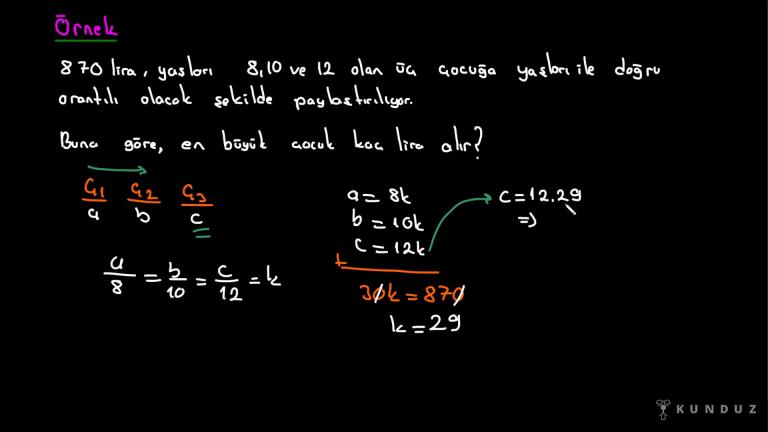 Örnek
870 lira, yaşları 8,10 ve 12 olan üç çocuğa yaşları ile doğru
orantılı olacak şekilde paylaştırılıyor.
Buna göre, en büyük çocuk kaç lira alır?
Ç1 Ç2 Ç3
a b c
a/8 = b/10 = c/12 = k
a = 8k
b = 10k
c = 12k
+
30k = 870
k = 29
c = 12.29
=)
KUNDUZ